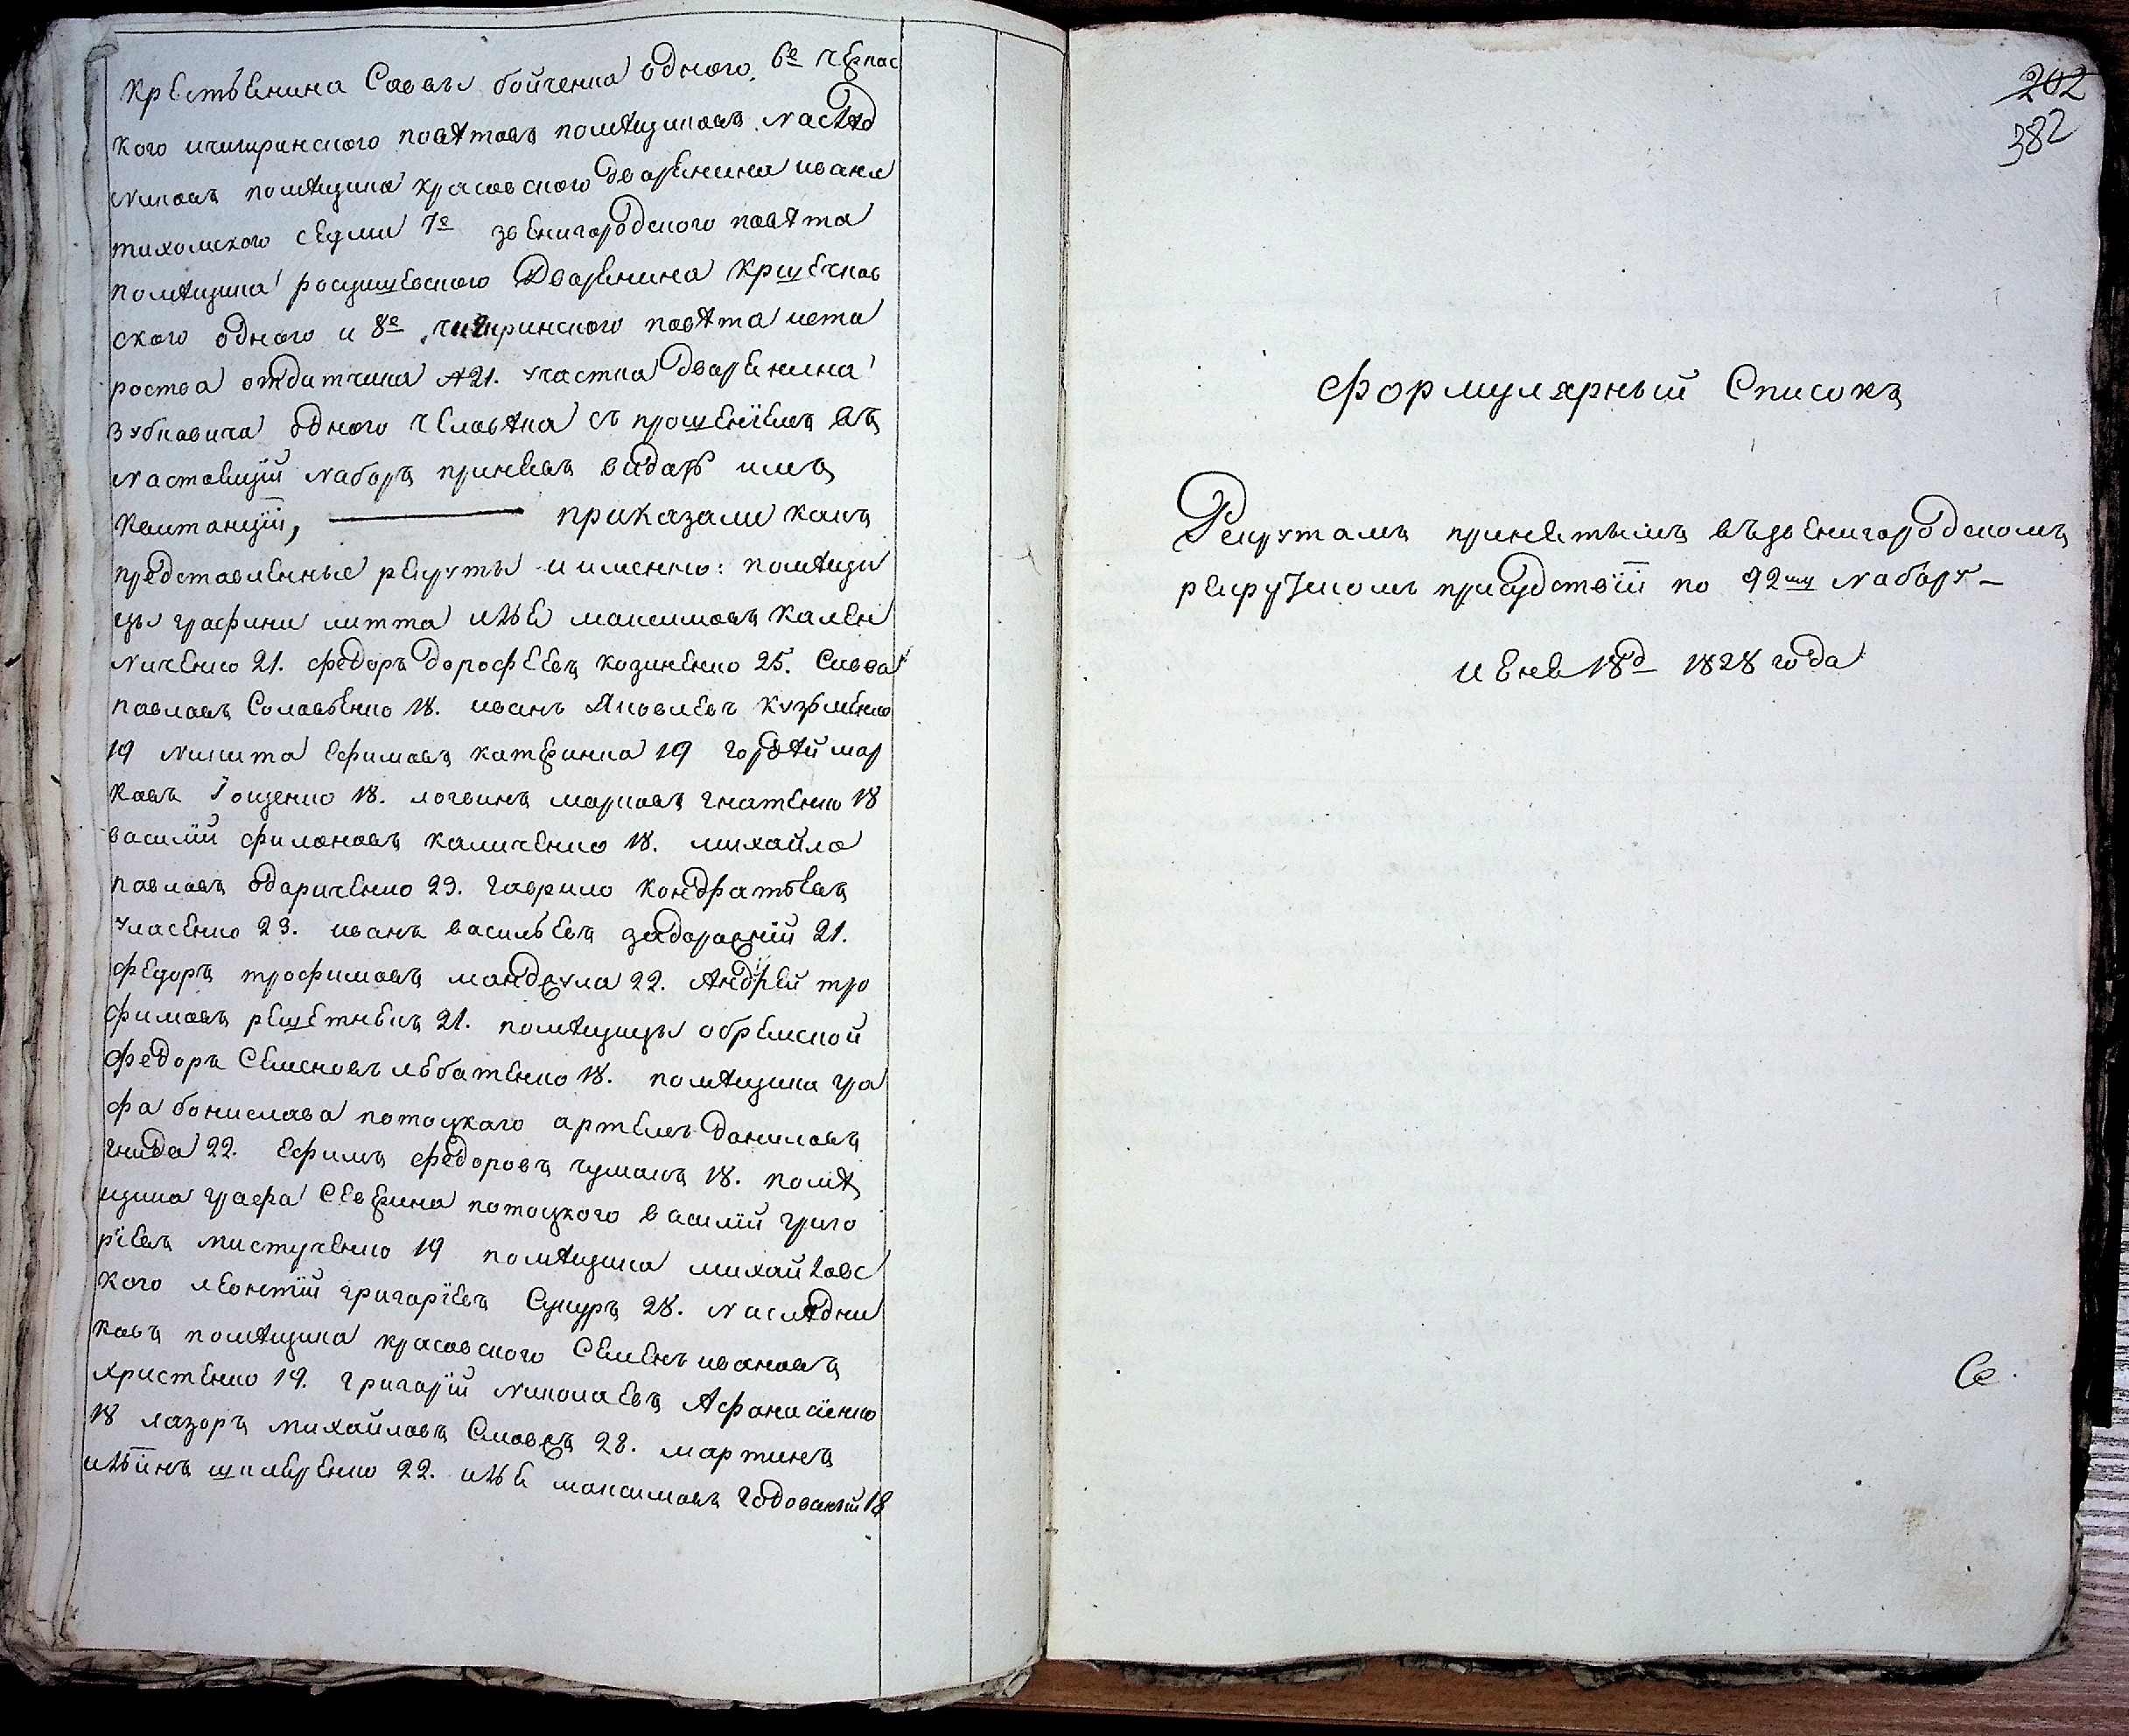 крестьенина Саввы бойченка одного, 6е черкас
кого ичигиринского повѣтовъ помѣщиковъ наслѣд
никовъ помѣщика красовского дворенина ивана
тихомского седми 7е звенигородского повѣта
помѣщика росцишевского дворенина
ского одного и 8е чигиринского повѣта иста
роства отдатчика №21. участка дворенина
Зубковича одного человѣка съ прошенїемъ въ
настоящїй наборъ принявъ видать имъ
квитанцїй, приказали какъ
представленные рекруты иименно: помѣщи
цы графини литта илья максимовъ камен
ниченко 21. федоръ дорофеевъ козиненко 25. Савва
павловъ Соловьенко 18. иванъ Яковлевъ кузменко
19 никита Ефимовъ катеринка 19 гордѣй мар
ковъ Тощенко 18. логвинъ марковъ гнатенко 18
василїй филоновъ каличенко 18. михайло
павловъ одариченко 23. гаврило кондратьевъ
уласенко 23. иванъ васильевъ задорожнїй 21.
федоръ трофимовъ мандрула 22. Андрей тро
фимовъ решетнекъ 21. помѣщицы обремской
федоръ Семеновъ лебатенко 18. помѣщика гра
фа бонислава потоцкаго артемъ даниловъ
гнида 22. Ефимъ федоровъ чумакъ 18. помѣ
щика графа Северина потоцкого василїй григо
рїевъ мистученко 19 помѣщика михайловс
кого леонтїй григорїевъ Сукуръ 28. наслѣдни
ковъ помѣщика красовского Семенъ ивановъ
христенко 19. григорїй николаевъ Афанасїенко
18 лазоръ михайловъ 28. мартинъ
ильїнъ 22. илья максимовъ годованый 18
202
382
Формулярный Списокъ
Рекрутамъ принятымъ възвенигородскомъ
рекрутскомъ присудствїи по 92му набору
иеня 18д 1828 года
Се.